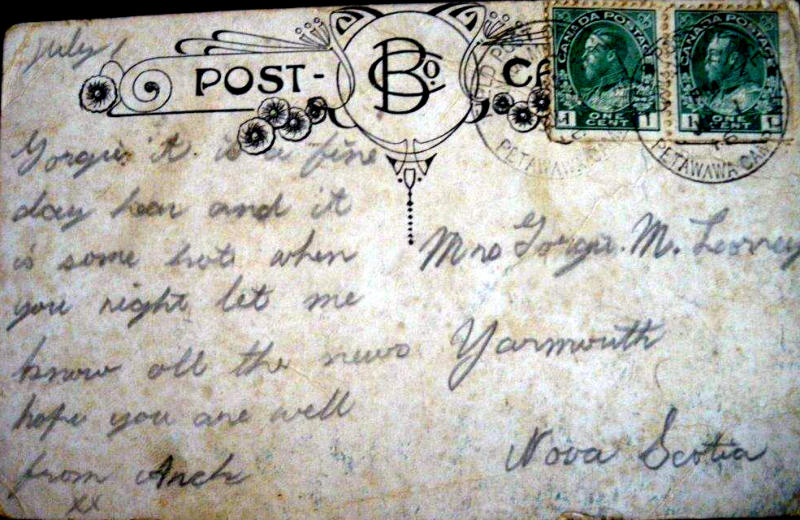 July 1
POST-
Co.
B
CA
CANADA POSTAGE
1 ONE CENT 1
CANADA POSTAGE
1 ONE CENT 1
PETAWAWA CAMP
PETAWAWA CAMP
Gorgie it is a fine
day hear and it
is some hot when
you right let me
know all the news
hope you are well
from Arch
xx
Mrs Gorgie. M.
Yarmouth
Nova Scotia